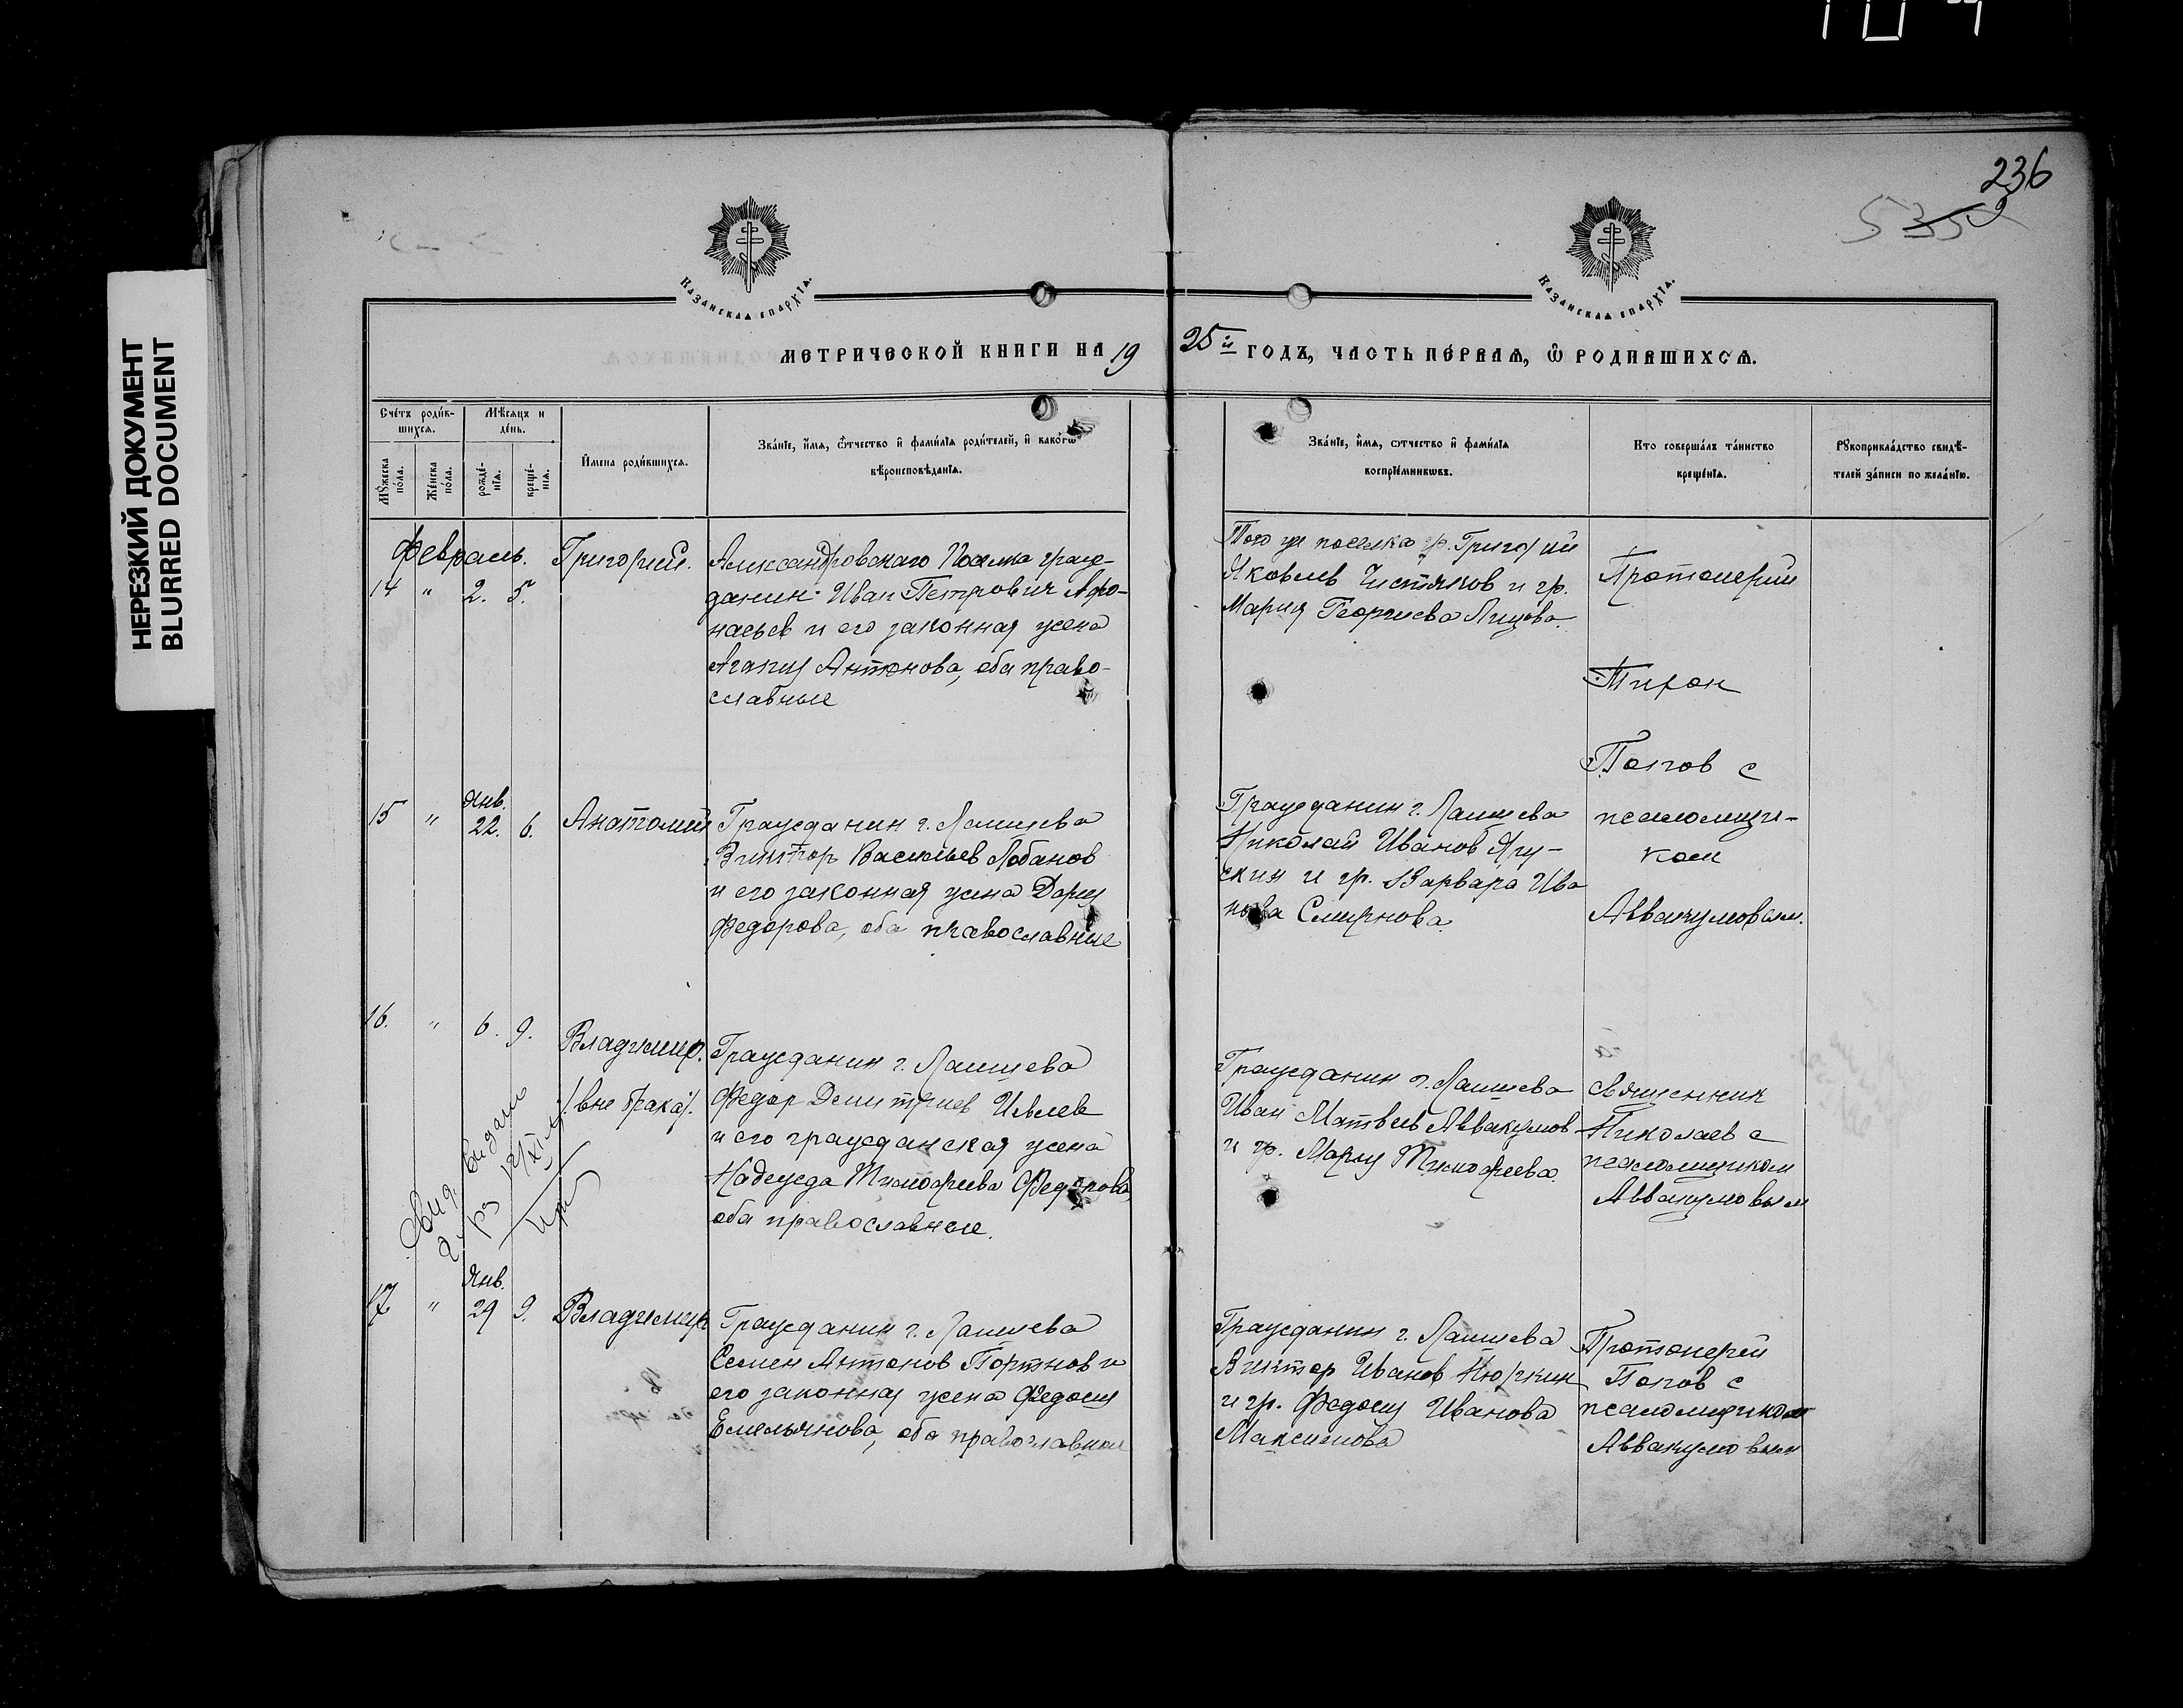 НЕРЕЗКИЙ ДОКУМЕНТ
BLURRED DOCUMENT
236
Казанская епархїя.
Казанская епархїя.
МЕТРИЧЕСКОЙ КНИГИ НА 19
25й ГОДЪ, ЧАСТЬ ПЕРВАЯ, Ѿ РОДИВШИХСЯ.
Счетъ родив-
шихся.
Мѣсяцъ и
день.
Мужеска
пола.
Женска
пола.
рожде-
нїя.
креще-
нїя.
Имена родившихся.
Званїе, имя, отчество и фамилїя родителей, и какогѡ
вѣроисповѣданїя.
Званїе, имя, отчество и фамилїя
воспрїемниковъ.
Кто совершалъ таинство
крещенїя.
Рукоприкладство свидѣ-
телей записи по желанїю.
Февраль.
14 " 2. 5.
Григорий.
Александровскаго Поселка граж-
данин Иван Петрович Афо-
насьев и его законная жена
Агапия Антонова, оба право-
славные
Того же поселка гр. Григорий
Яковлев Чистяков и гр.
Мария Георгиева
Протоиерей
Тихон
Попов с
псаломщи-
ком
Аввакумовым.
Янв.
15 " 22. 6.
Анатолий
Гражданин г. Лаишева
Виктор Васильев Лобанов
и его законная жена Дария
Федорова, оба православные
Гражданин г. Лаишева
Николай Иванов Ягу-
скин и гр. Варвара Ива
нова Смирнова.
16. " 6. 9.
Владимир.
(вне брака).
Гражданин г. Лаишева
Федор Димитриев Ивлев
и его гражданская жена
Надежда Тимофеева Федорова
оба православные.
Гражданин г. Лаишева
Иван Матвеев Аввакумов
и гр. Мария Тимофеева
Священник
Николаев с
псаломщиком
Аввакумовым
выдано
Янв.
17 " 29 9.
Владимир
Гражданин г. Лаишева
Семен Антонов Портнов и
его законная жена Федосия
Емельянова, оба православные
Гражданин г. Лаишева
Виктор Иванов Нюркин
и гр. Федосия Иванова
Максимова
Протоиерей
Попов с
псаломщиком
Аввакумовым